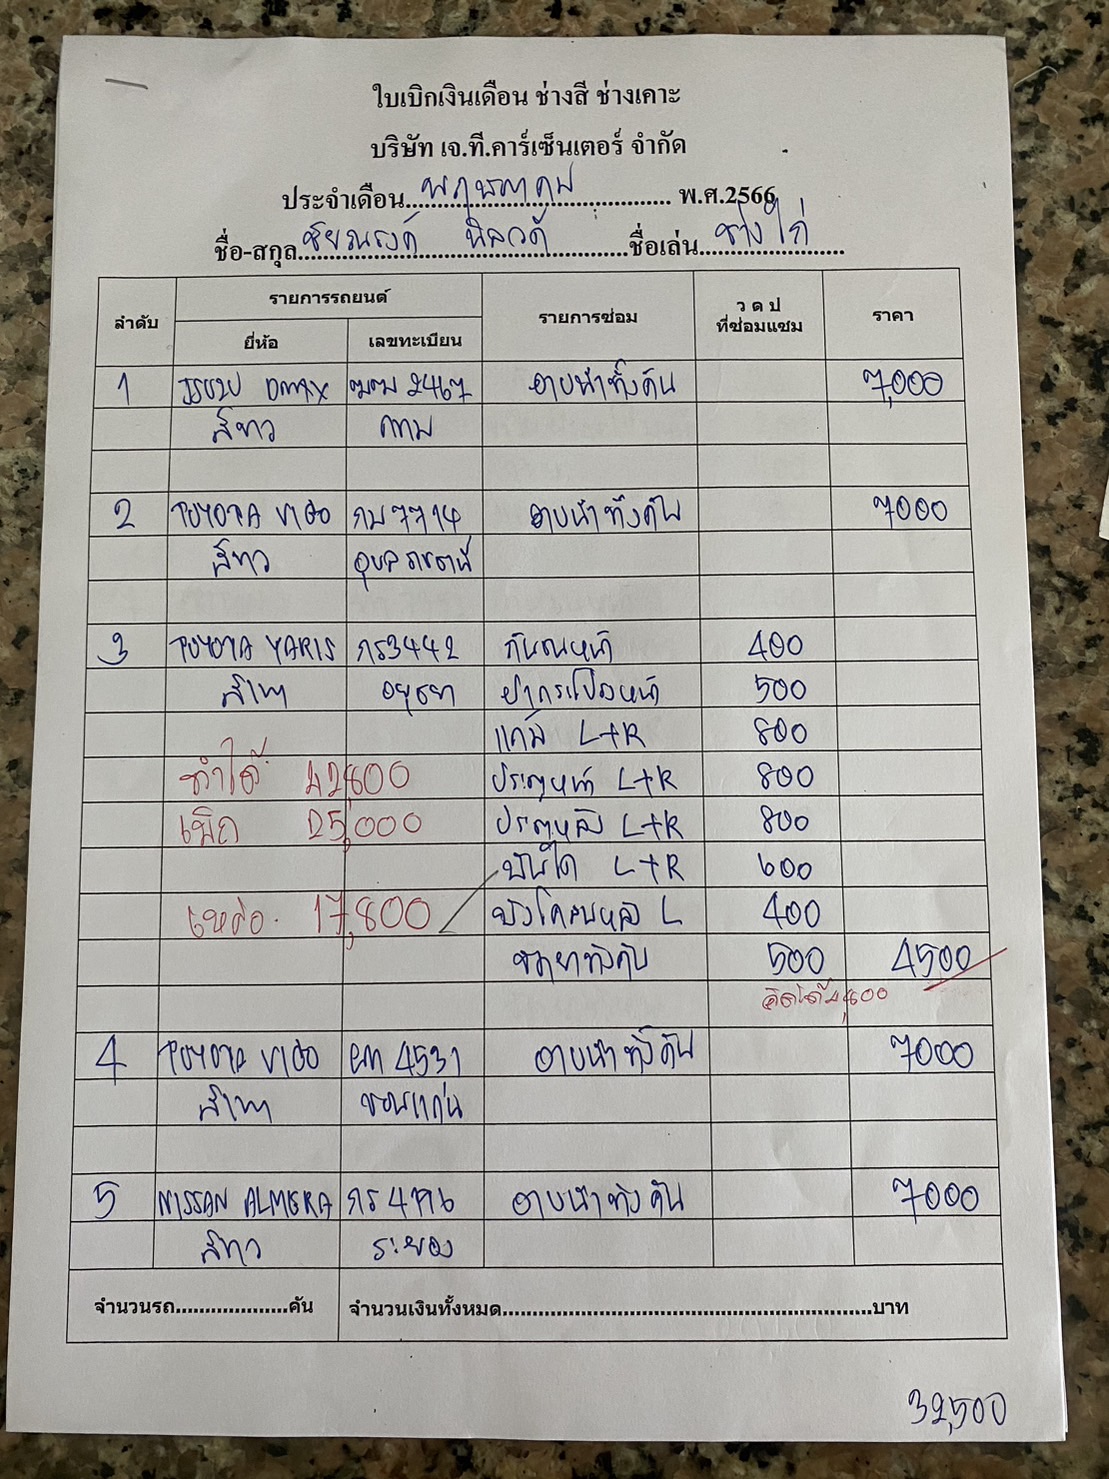 ใบเบิกเงินเดือน ช่างสี ช่างเคาะ
บริษัท เจ.ที.คาร์เซ็นเตอร์ จำกัด
ประจำเดือน พฤษภาคม พ.ศ.2566
ชื่อ-สกุล ชัยณรงค์ ชื่อเล่น ช่างไก่
ลำดับ รายการรถยนต์ รายการซ่อม ว ด ป ที่ซ่อมแซม ราคา
ยี่ห้อ เลขทะเบียน
1 ISUZU DMAX 2467 อาบน้ำทั้งคัน 7,000
สีขาว กทม
2 TOYOTA VIGO 7714 อาบน้ำทั้งคัน 7000
สีขาว อุบลราชธานี
3 TOYOTA YARIS กร3442 กันชนหน้า 400
สีเทา อยุธยา ฝากระโปรงหน้า 500
แก้ม L+R 800
ทำได้ 42,800 ประตูหน้า L+R 800
เบิก 25,000 ประตูหลัง L+R 800
บันได L+R 600
เหลือ 17,800 บังโคลนหลัง L 400
ขัดยาทั้งคัน 500 4500
คิดได้ 4,800
4 TOYOTA VIGO 4531 อาบน้ำทั้งคัน 7000
สีเทา ขอนแก่น
5 NISSAN ALMERA กร อาบน้ำทั้งคัน 7000
สีขาว ระยอง
จำนวนรถ...................คัน จำนวนเงินทั้งหมด...............................................................บาท
32,500